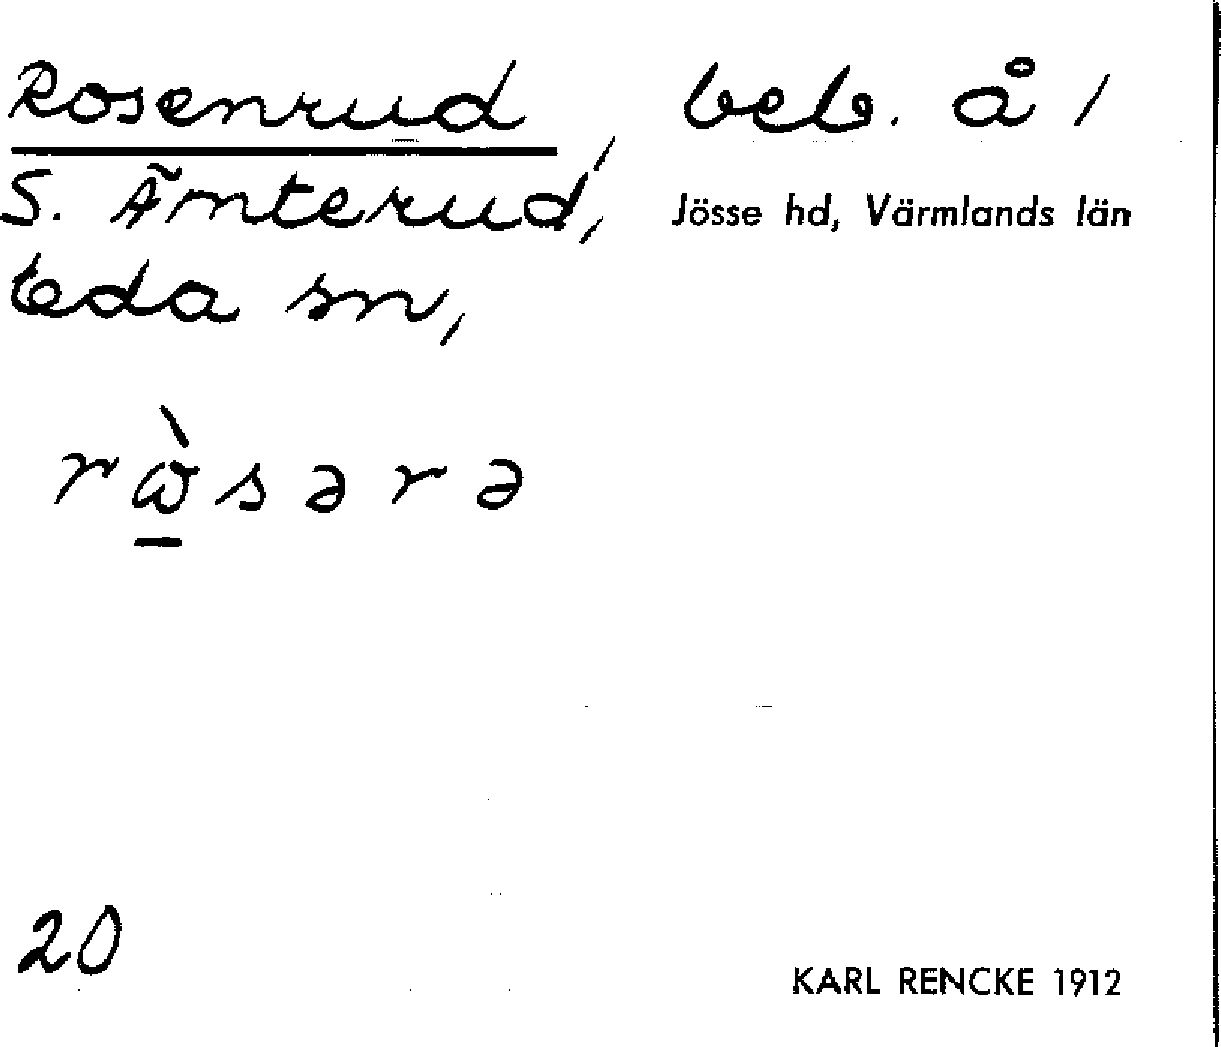 Rosenrud, beb. å 1
S. Ämterud, Jösse hd, Värmlands län
Eda sn,
rὼsərə
20
KARL RENCKE 1912